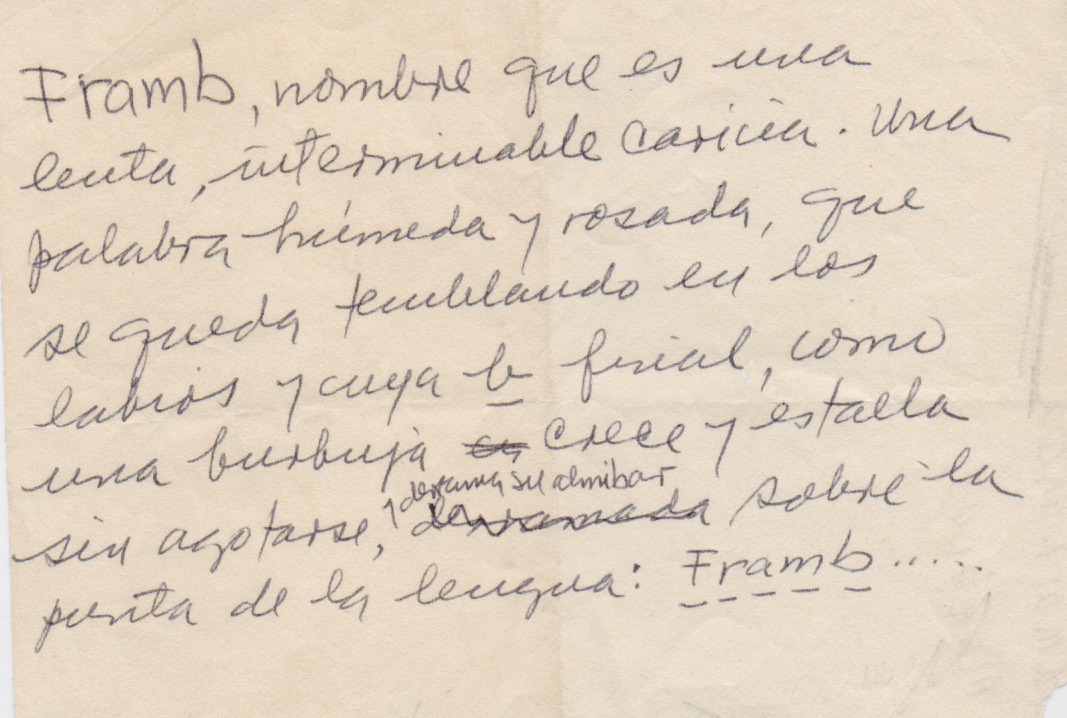 Framb, nombre que es una
lenta, interminable caricia. Una
palabra húmeda y rosada, que
se queda temblando en los
labios y cuya b final, como
una burbuja crece y estalla
y derrama su almibar
sin agotarse, derramada sobre la
punta de la lengua: Framb.....